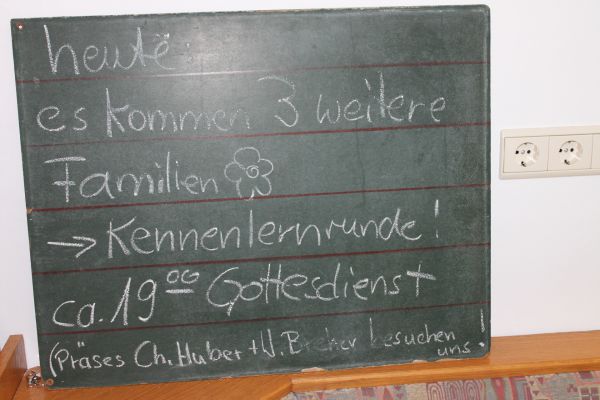 heute:
es kommen 3 weitere
Familien
→ Kennenlernrunde!
ca. 19⁰⁰ Gottesdienst
(Präses Ch. Huber + W. Breher besuchen
uns!